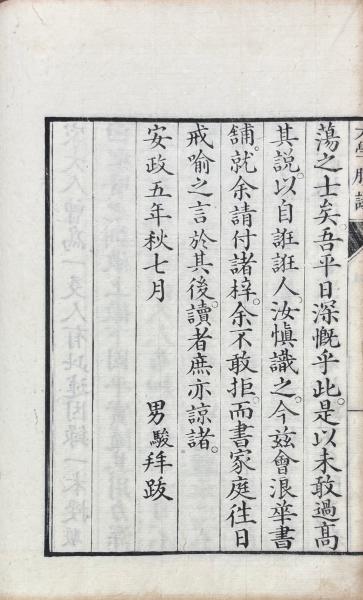 蕩之士矣。吾平日深慨乎此。是以未敢過高
其説。以自誑誑人。汝愼識之。今玆會浪華書
舖。就余請付諸梓。余不敢拒。而書家庭往日
戒喩之言於其後。讀者庶亦諒諸。
安政五年秋七月
男駿拜跋